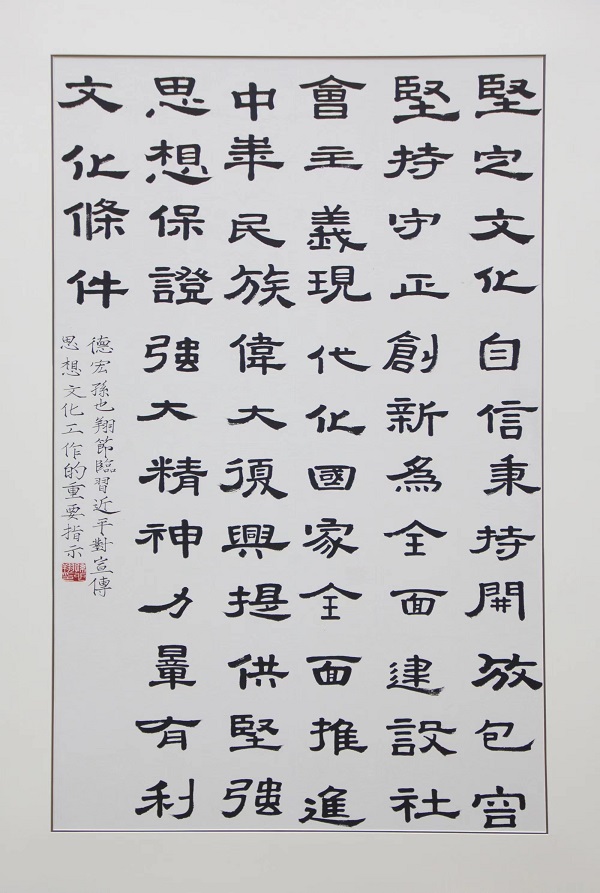 堅定文化自信秉持開放包容
堅持守正創新爲全面建設社
會主義現代化國家全面推進
中華民族偉大復興提供堅强
思想保證强大精神力量有利
文化條件
德宏孫也翔節臨習近平對宣傳
思想文化工作的重要指示